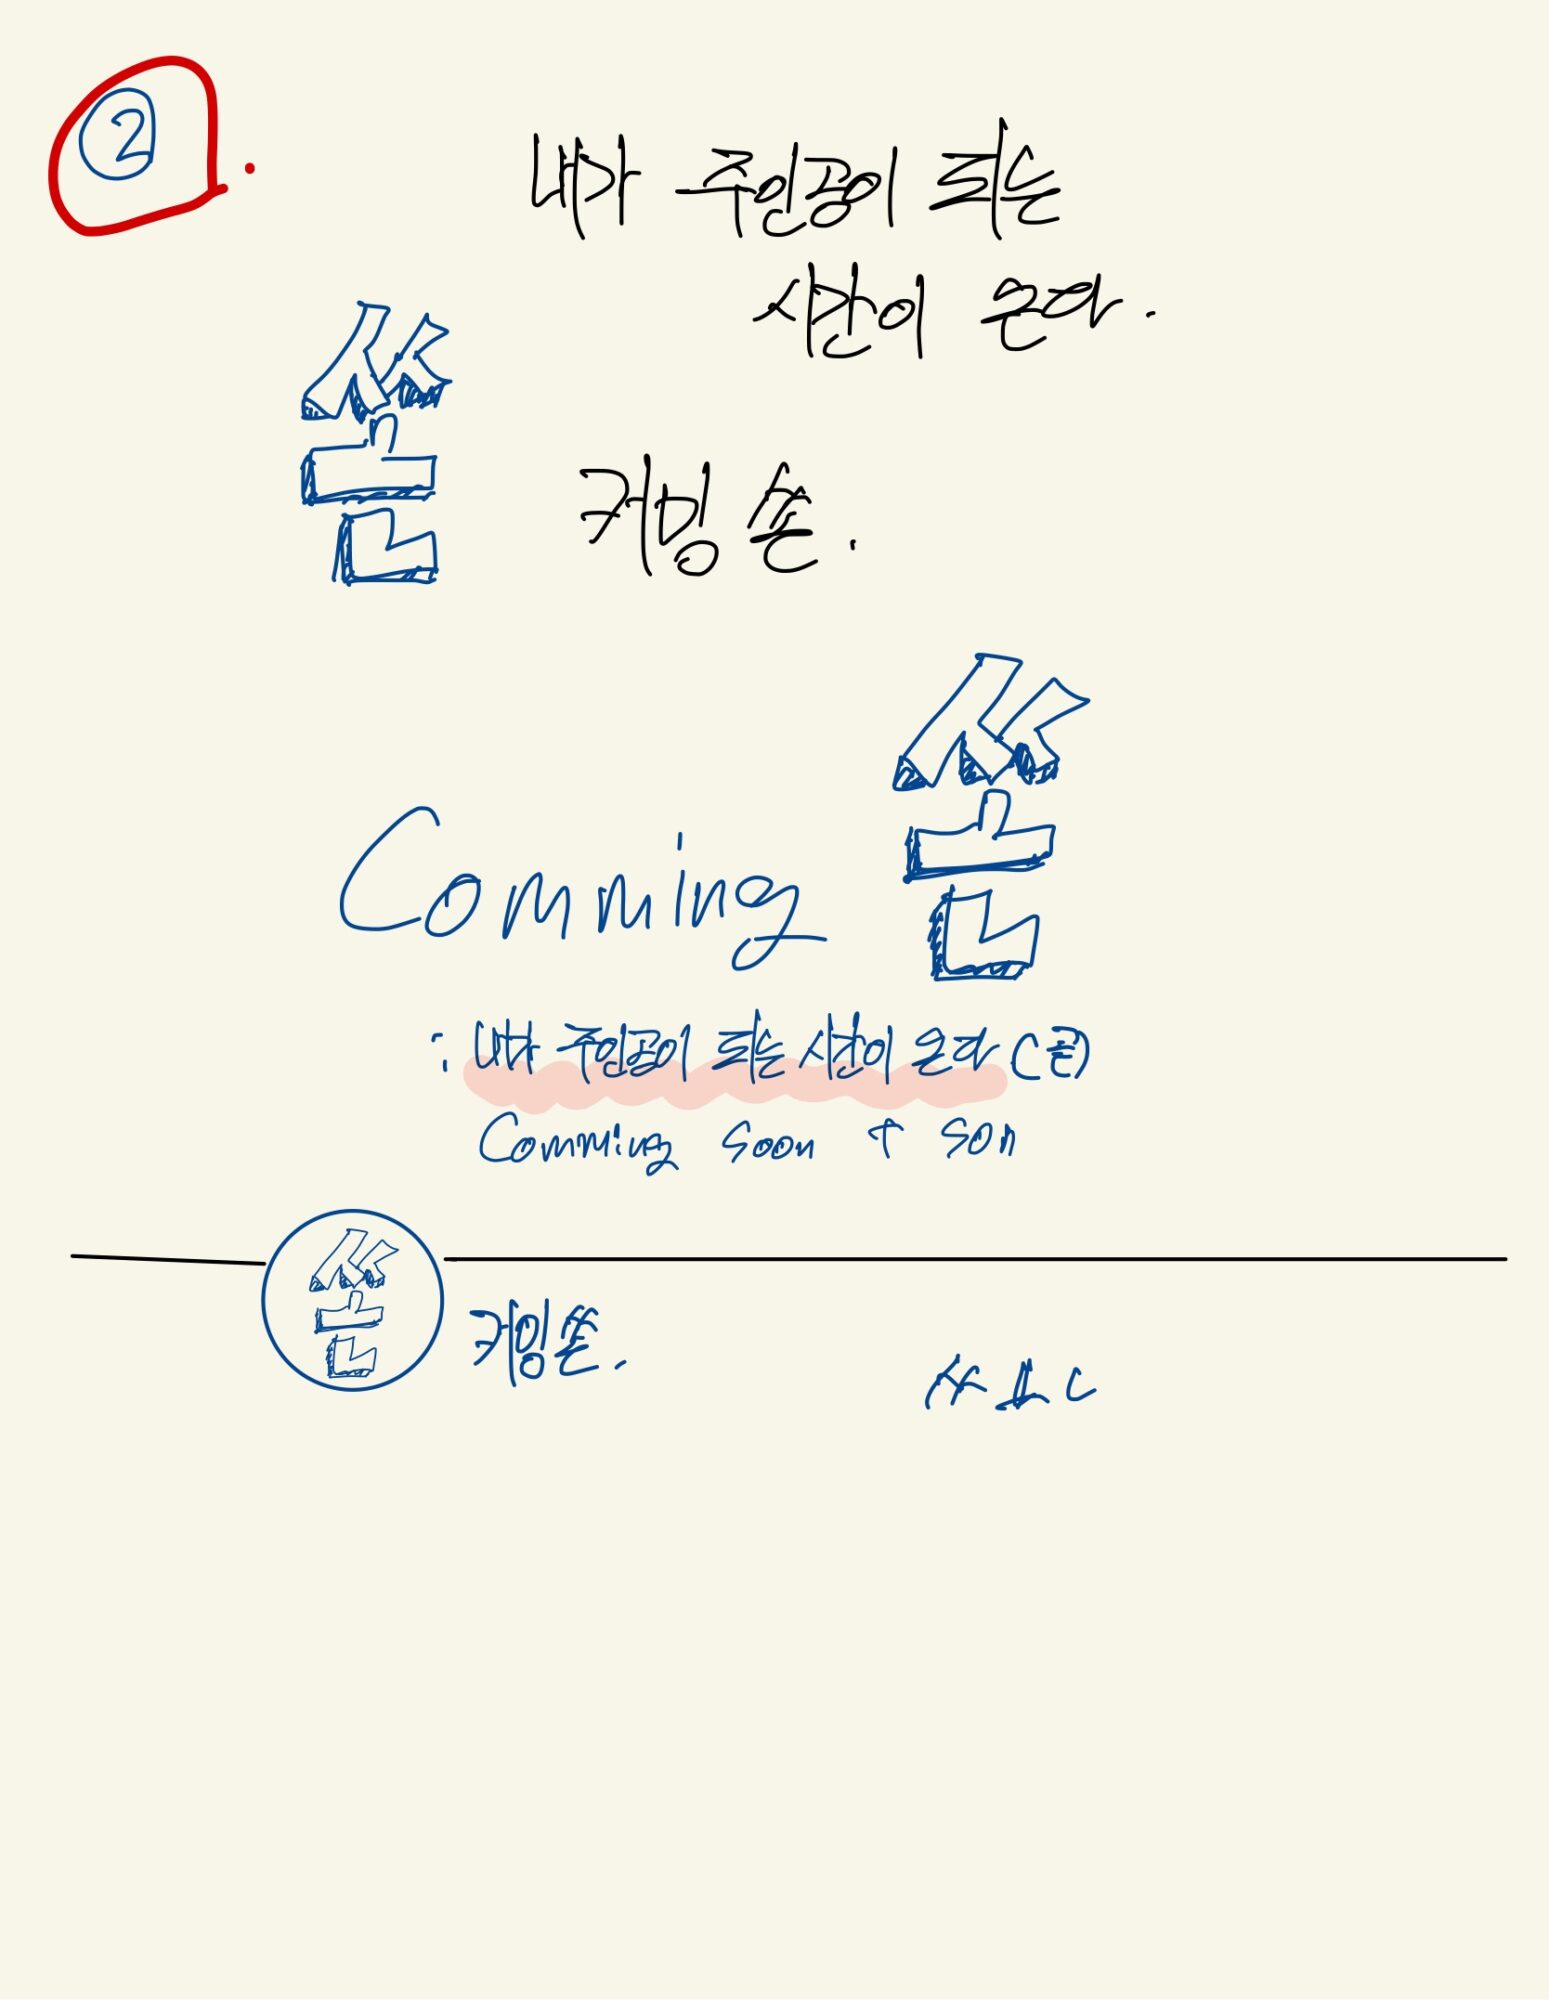 ②.
내가 주인공이 되는
시간이 온다.
쏜
커밍 쏜.
Comming 쏜
: 내가 주인공이 되는 시간이 온다
Comming Soon + Son
쏜 커밍쏜.
ㅆ ㅗ ㄴ